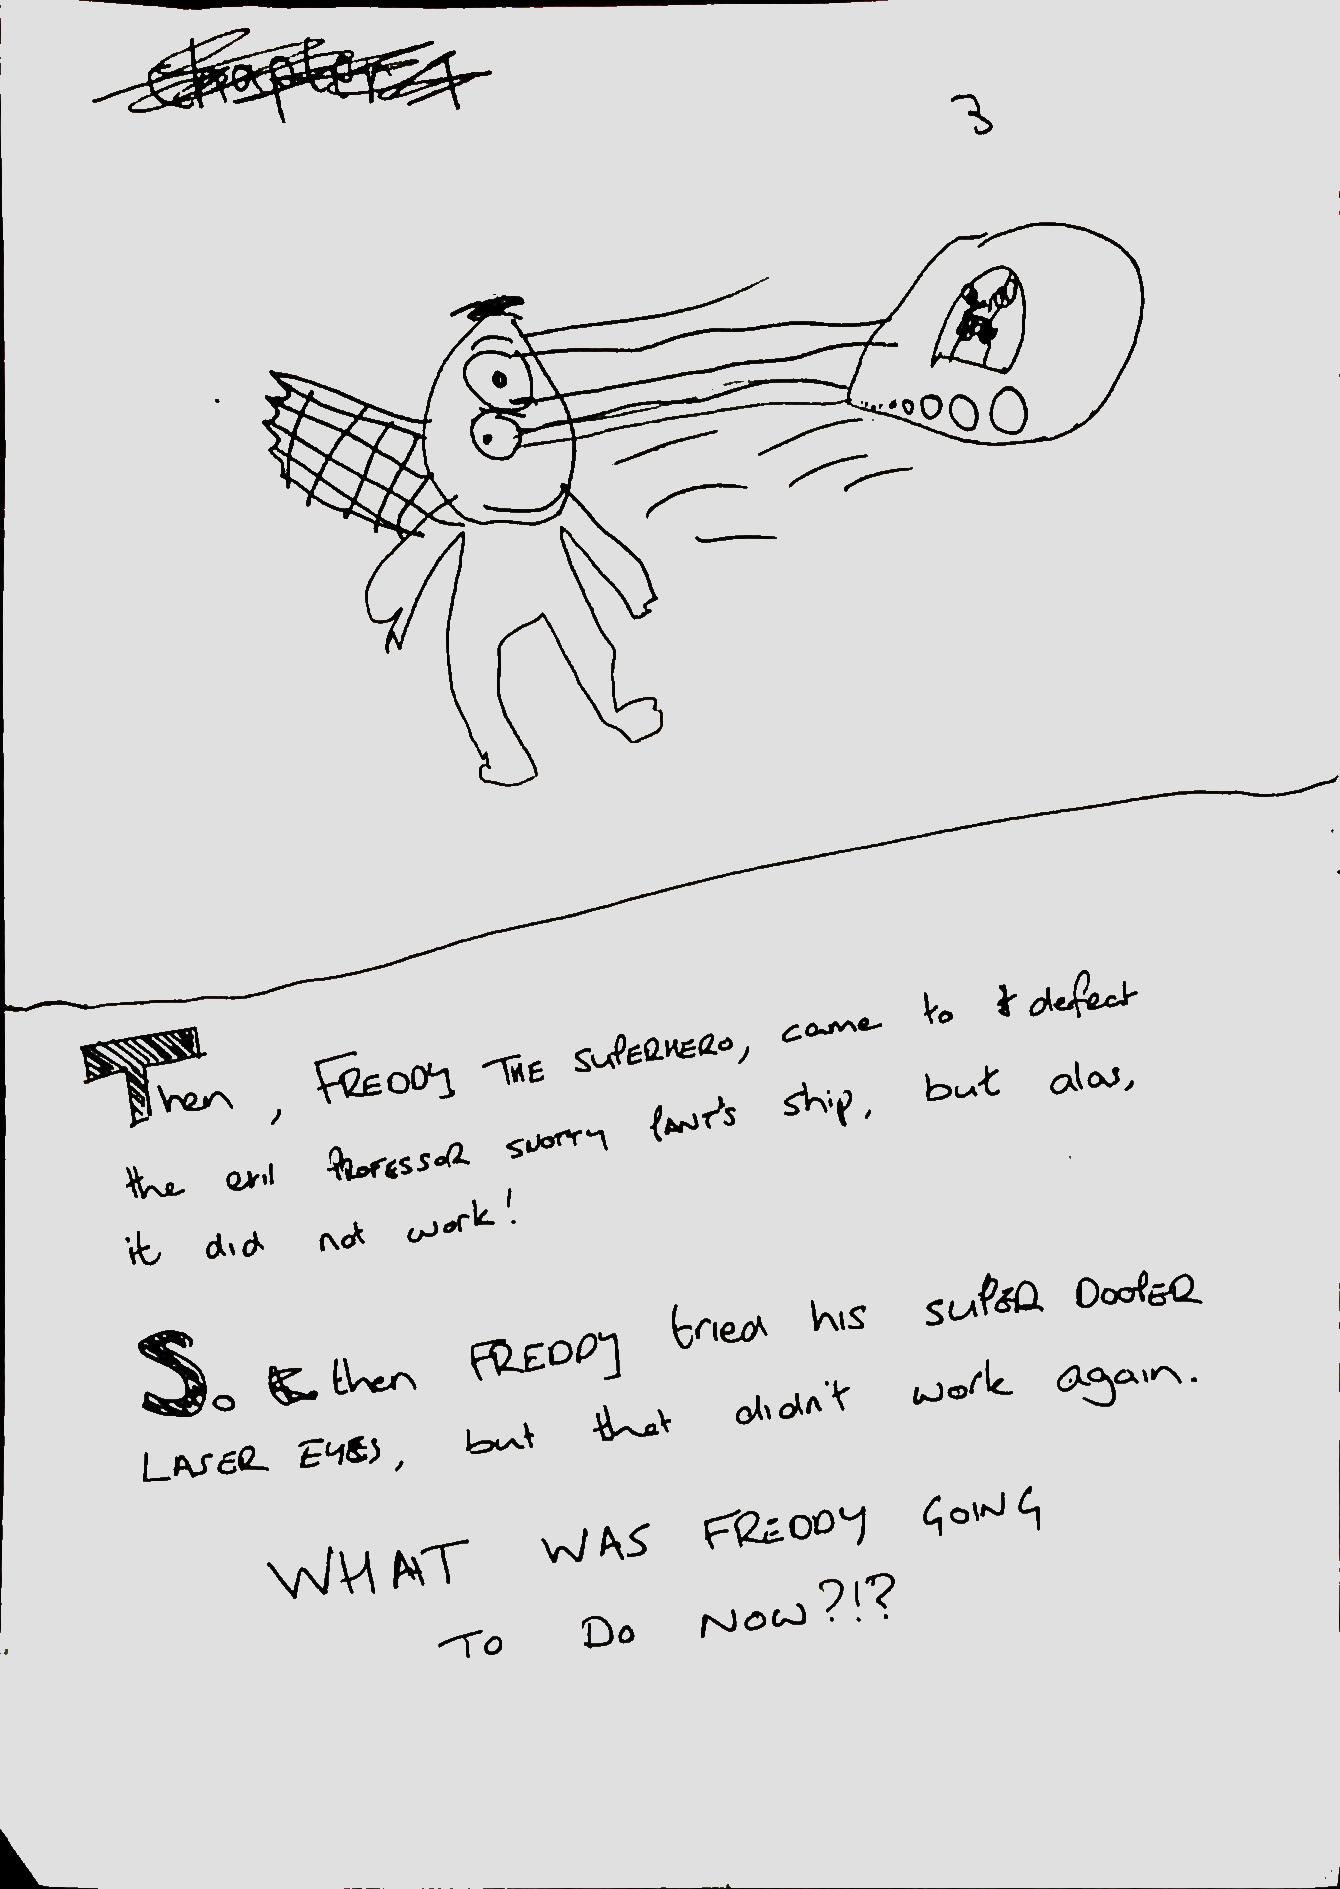 Chapter 1
3
Then, FREDDY THE SUPERHERO, came to defeat
the evil PROFESSOR SNOTTY PANT'S ship, but alas,
it did not work!
So then FREDDY tried his SUPER DOOPER
LASER EYES, but that didn't work again.
WHAT WAS FREDDY GOING
TO DO NOW?!?